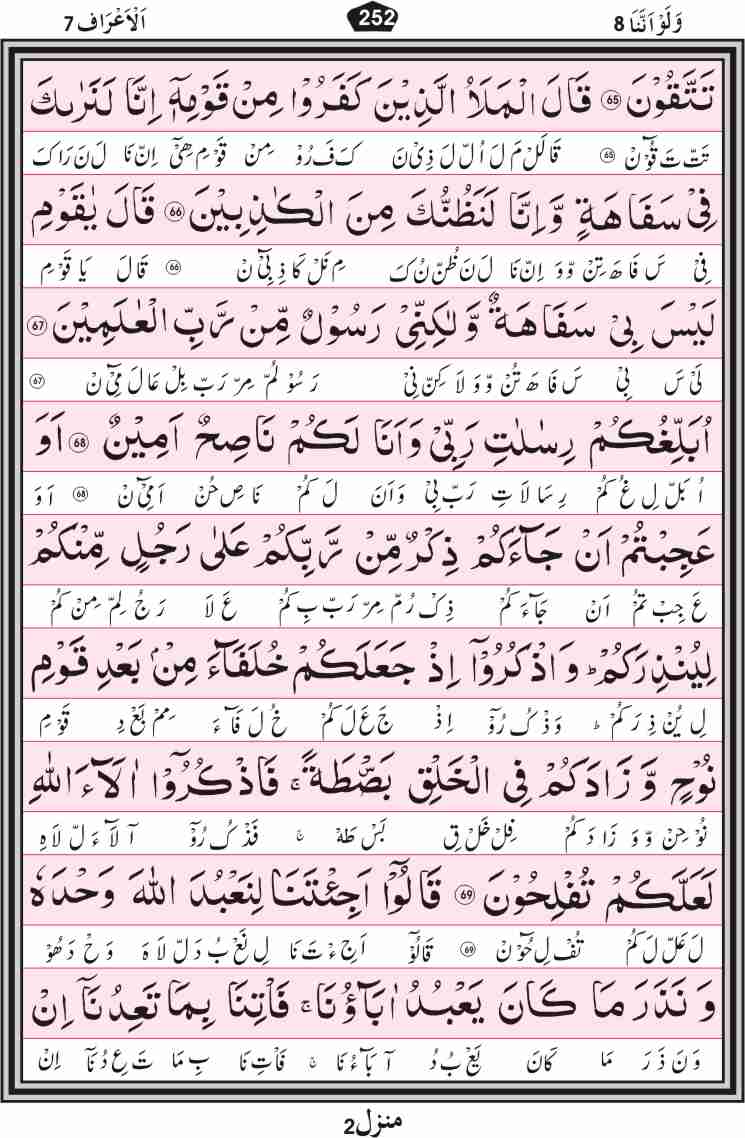 وَلَوْ اَنَّنَا 8 252 اَلْاَعْرَاف 7
تَتَّقُوْنَ ﴿65﴾ قَالَ الْمَلَاُ الَّذِيْنَ كَفَرُوْا مِنْ قَوْمِهٖۤ اِنَّا لَنَرٰىكَ
تَتْ تَ قُوْٓنْ ﴿65﴾ قَالَلْ مَ لَ اُلْ لَ ذِىْ نَ كَ فَ رُوْ مِنْ قَوْ مِ هِىْٓ اِنْ نَا لَ نَ رَا كَ
فِىْ سَفَاهَةٍ وَّاِنَّا لَنَظُنُّكَ مِنَ الْكٰذِبِيْنَ ﴿66﴾ قَالَ يٰقَوْمِ
فِىْ سَ فَا هَ تِنْ وْ وَ اِنْ نَا لَ نَ ظُنْ نُ كَ مِ نَلْ كَا ذِ بِىْٓ نْ ﴿66﴾ قَالَ يَا قَوْ مِ
لَيْسَ بِىْ سَفَاهَةٌ وَّلٰكِنِّىْ رَسُوْلٌ مِّنْ رَّبِّ الْعٰلَمِيْنَ ﴿67﴾
لَىْ سَ بِىْ سَ فَا هَ تُنْ وْ وَ لَا كِنْ نِىْ رَ سُوْ لُمْ مِرْ رَبْ بِلْ عَالَ مِىْٓ نْ ﴿67﴾
اُبَلِّغُكُمْ رِسٰلٰتِ رَبِّىْ وَاَنَا لَكُمْ نَاصِحٌ اَمِيْنٌ ﴿68﴾ اَوَ
اُ بَلْ لِ غُ كُمْ رِ سَا لَا تِ رَبْ بِىْ وَ اَنَ لَ كُمْ نَا صِ حُنْ اَ مِىْٓ نْ ﴿68﴾ اَ وَ
عَجِبْتُمْ اَنْ جَآءَكُمْ ذِكْرٌ مِّنْ رَّبِّكُمْ عَلٰى رَجُلٍ مِّنْكُمْ
عَ جِبْ تُمْ اَنْ جَآءَ كُمْ ذِكْ رُمْ مِرْ رَبْ بِ كُمْ عَ لَا رَ جُ لِمْ مِنْ كُمْ
لِيُنْذِرَكُمْ ؕ وَاذْكُرُوْۤا اِذْ جَعَلَكُمْ خُلَفَآءَ مِنْۢ بَعْدِ قَوْمِ
لِ يُنْ ذِ رَ كُمْ ؕ وَذْ كُ رُوْٓ اِذْ جَ عَ لَ كُمْ خُ لَ فَآ ءَ مِمْ بَعْ دِ قَوْ مِ
نُوْحٍ وَّزَادَكُمْ فِى الْخَلْقِ بَصْۜطَةً ۚ فَاذْكُرُوْۤا اٰلَآءَ اللّٰهِ
نُوْ حِنْ وْ وَ زَا دَ كُمْ فِلْ خَلْ قِ بَسْ طَهْ ۚ فَذْ كُ رُوْٓ آ لَآ ءَ لْ لَا هِ
لَعَلَّكُمْ تُفْلِحُوْنَ ﴿69﴾ قَالُوْۤا اَجِئْتَنَا لِنَعْبُدَ اللّٰهَ وَحْدَهٗ
لَ عَلْ لَ كُمْ تُفْ لِ حُوْٓ نْ ﴿69﴾ قَالُوْٓ اَ جِءْ تَ نَا لِ نَعْ بُ دَ لْ لَا هَ وَ حْ دَ هُوْ
وَنَذَرَ مَا كَانَ يَعْبُدُ اٰبَآؤُنَا ۚ فَاْتِنَا بِمَا تَعِدُنَاۤ اِنْ
وَ نَ ذَ رَ مَا كَانَ يَعْ بُ دُ آ بَآ ءُ نَا ۚ فَاْ تِ نَا بِ مَا تَ عِ دُ نَآ اِنْ
منزل2